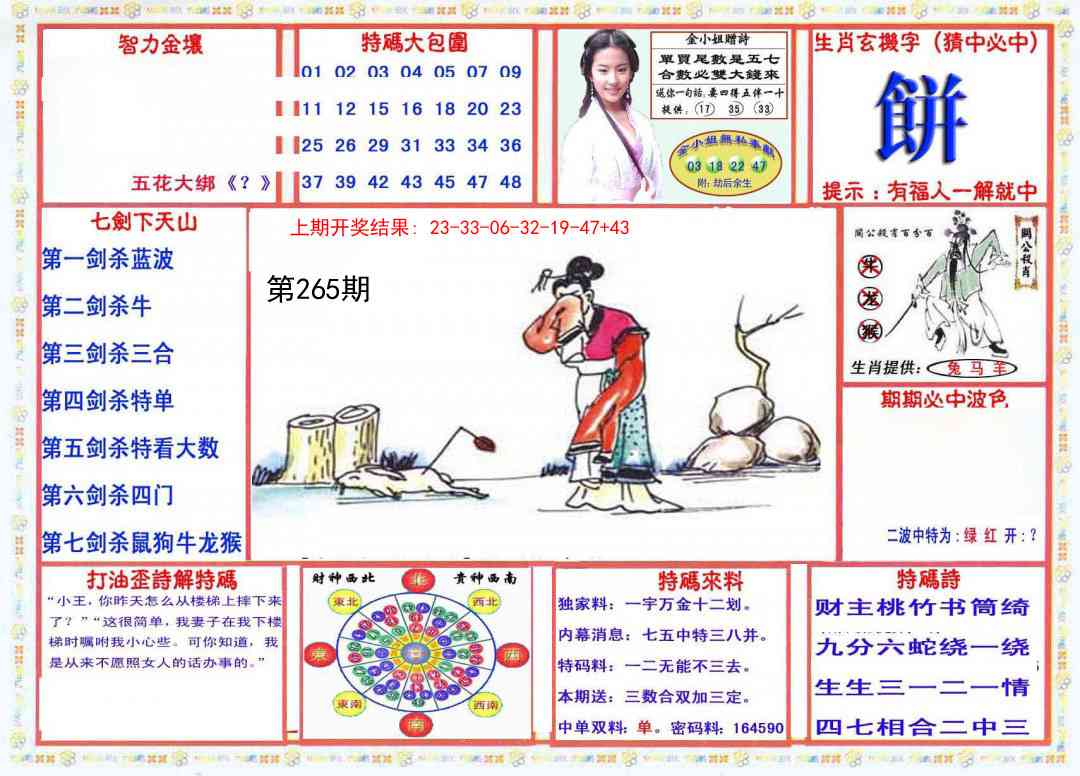 智力金壤
五花大绑《？》
特碼大包圍
01 02 03 04 05 07 09
11 12 15 16 18 20 23
25 26 29 31 33 34 36
37 39 42 43 45 47 48
金小姐赠詩
單買尾數是五七
合數必雙大錢來
送你一句話:要四得五伴一十
提供: 17 35 33
金小姐無私奉獻
03 18 22 47
附:劫后余生
生肖玄機字（猜中必中）
餅
提示：有福人一解就中
七劍下天山
第一剑杀蓝波
第二剑杀牛
第三剑杀三合
第四剑杀特单
第五剑杀特看大数
第六剑杀四门
第七剑杀鼠狗牛龙猴
上期开奖结果: 23-33-06-32-19-47+43
第265期
關公殺肖百分百
關公殺肖
牛
龙
猴
生肖提供: 兔 马 羊
期期必中波色
二波中特为:绿 红 开:?
打油歪詩解特碼
“小王，你昨天怎么从楼梯上摔下来
了？”“这很简单，我妻子在我下楼
梯时嘱咐我小心些。可你知道，我
是从来不愿照女人的话办事的。”
财神西北
贵神西南
北
東北
西北
東
西
東南
西南
南
特碼來料
独家料：一字万金十二划。
内幕消息：七五中特三八并。
特码料：一二无能不三去。
本期送：三数合双加三定。
中单双料: 单。密码料: 164590
特碼詩
财主桃竹书筒绮
九分六蛇绕一绕
生生三一二一情
四七相合二中三